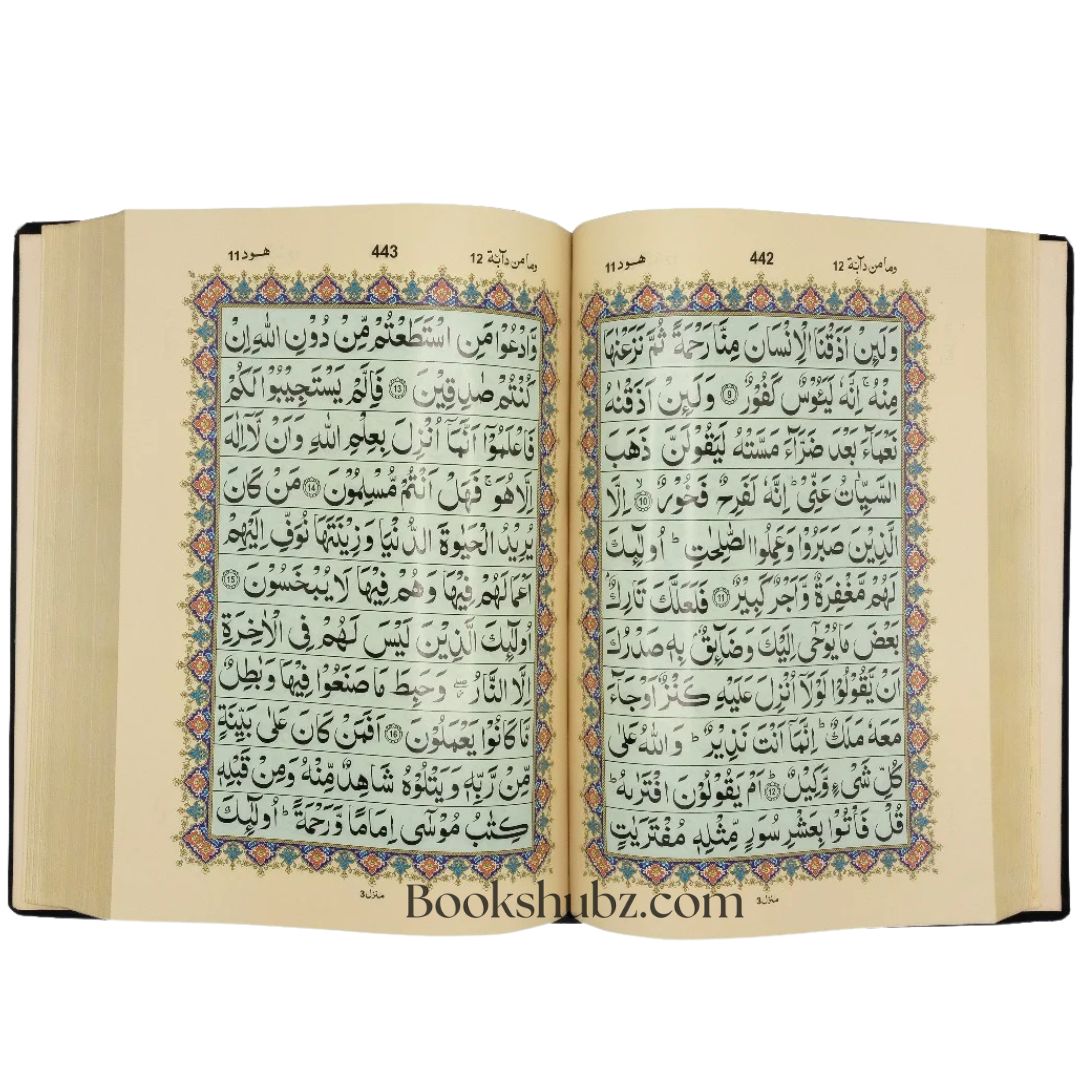 وما من دآبة 12
442
هود 11
وَلَىِٕنْ اَذَقْنَا الْاِنْسَانَ مِنَّا رَحْمَةً ثُمَّ نَزَعْنٰهَا
مِنْهُ ۚ اِنَّهٗ لَیَـُٔوْسٌ كَفُوْرٌ 9 وَلَىِٕنْ اَذَقْنٰهُ
نَعْمَآءَ بَعْدَ ضَرَّآءَ مَسَّتْهُ لَیَقُوْلَنَّ ذَهَبَ
السَّیِّاٰتُ عَنِّیْ ؕ اِنَّهٗ لَفَرِحٌ فَخُوْرٌ 10 ۙ اِلَّا
الَّذِیْنَ صَبَرُوْا وَعَمِلُوا الصّٰلِحٰتِ ؕ اُولٰٓىِٕكَ
لَهُمْ مَّغْفِرَةٌ وَّاَجْرٌ كَبِیْرٌ 11 فَلَعَلَّكَ تَارِكٌۢ
بَعْضَ مَا یُوْحٰۤی اِلَیْكَ وَضَآىِٕقٌۢ بِهٖ صَدْرُكَ
اَنْ یَّقُوْلُوْا لَوْلَاۤ اُنْزِلَ عَلَیْهِ كَنْزٌ اَوْ جَآءَ
مَعَهٗ مَلَكٌ ؕ اِنَّمَاۤ اَنْتَ نَذِیْرٌ ؕ وَاللّٰهُ عَلٰی
كُلِّ شَیْءٍ وَّكِیْلٌ 12 ؕ اَمْ یَقُوْلُوْنَ افْتَرٰىهُ ؕ
قُلْ فَاْتُوْا بِعَشْرِ سُوَرٍ مِّثْلِهٖ مُفْتَرَیٰتٍ
منزل 3
وما من دآبة 12
443
هود 11
وَّادْعُوْا مَنِ اسْتَطَعْتُمْ مِّنْ دُوْنِ اللّٰهِ اِنْ
كُنْتُمْ صٰدِقِیْنَ 13 فَاِلَّمْ یَسْتَجِیْبُوْا لَكُمْ
فَاعْلَمُوْۤا اَنَّمَاۤ اُنْزِلَ بِعِلْمِ اللّٰهِ وَاَنْ لَّاۤ اِلٰهَ
اِلَّا هُوَ ۚ فَهَلْ اَنْتُمْ مُّسْلِمُوْنَ 14 مَنْ كَانَ
یُرِیْدُ الْحَیٰوةَ الدُّنْیَا وَزِیْنَتَهَا نُوَفِّ اِلَیْهِمْ
اَعْمَالَهُمْ فِیْهَا وَهُمْ فِیْهَا لَا یُبْخَسُوْنَ 15
اُولٰٓىِٕكَ الَّذِیْنَ لَیْسَ لَهُمْ فِی الْاٰخِرَةِ
اِلَّا النَّارُ ۖ وَحَبِطَ مَا صَنَعُوْا فِیْهَا وَبٰطِلٌ
مَّا كَانُوْا یَعْمَلُوْنَ 16 اَفَمَنْ كَانَ عَلٰی بَیِّنَةٍ
مِّنْ رَّبِّهٖ وَیَتْلُوْهُ شَاهِدٌ مِّنْهُ وَمِنْ قَبْلِهٖ
كِتٰبُ مُوْسٰۤی اِمَامًا وَّرَحْمَةً ؕ اُولٰٓىِٕكَ
منزل 3
Bookshubz.com